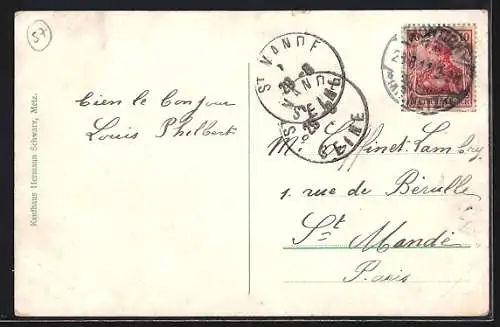 57
Kaufhaus Hermann Schwarz, Metz.
bien le bonjour
Louis Philbert
ST MANDE
ST MANDE
SEINE
10
Mr
1. rue de Bérulle
St Mandé
Paris